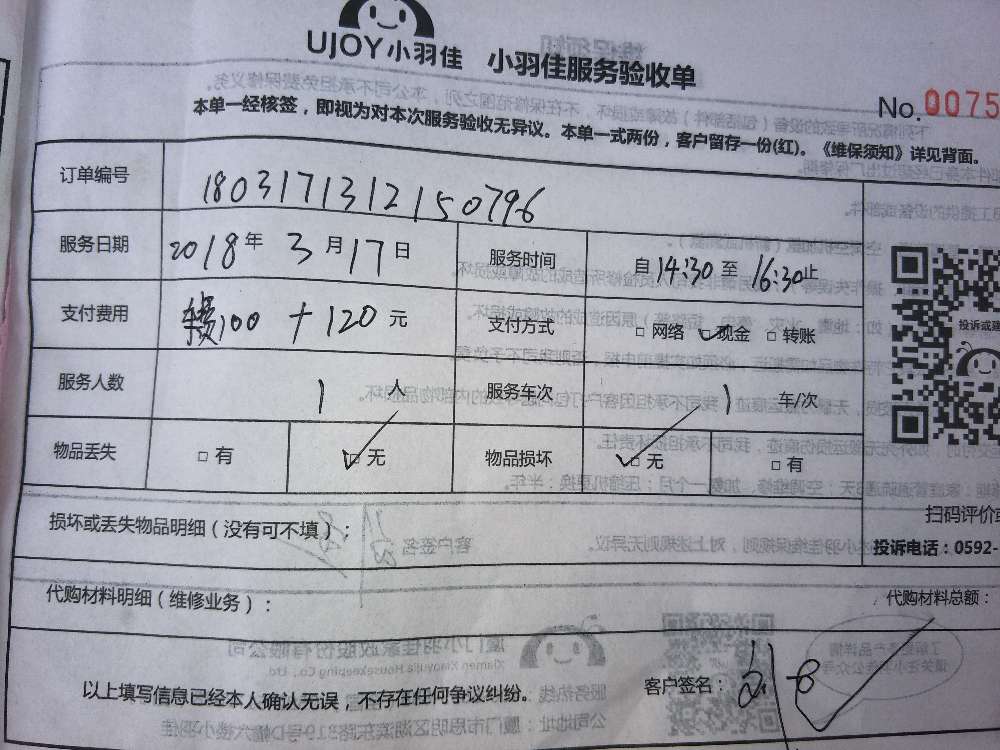 UJOY小羽佳 小羽佳服务验收单
No.0075
本单一经核签，即视为对本次服务验收无异议。本单一式两份，客户留存一份(红)。《维保须知》详见背面。
订单编号 1803171312150796
服务日期 2018年 3月17日 服务时间 自14:30至16:30止
支付费用 100 + 120 元 支付方式 □网络 ☑现金 □转账
服务人数 1 人 服务车次 1 车/次
物品丢失 □有 ☑无 物品损坏 ☑无 □有
投诉或建
扫码评价或
损坏或丢失物品明细（没有可不填）：
投诉电话：0592-
代购材料明细（维修业务）： 代购材料总额：
以上填写信息已经本人确认无误，不存在任何争议纠纷。 客户签名：